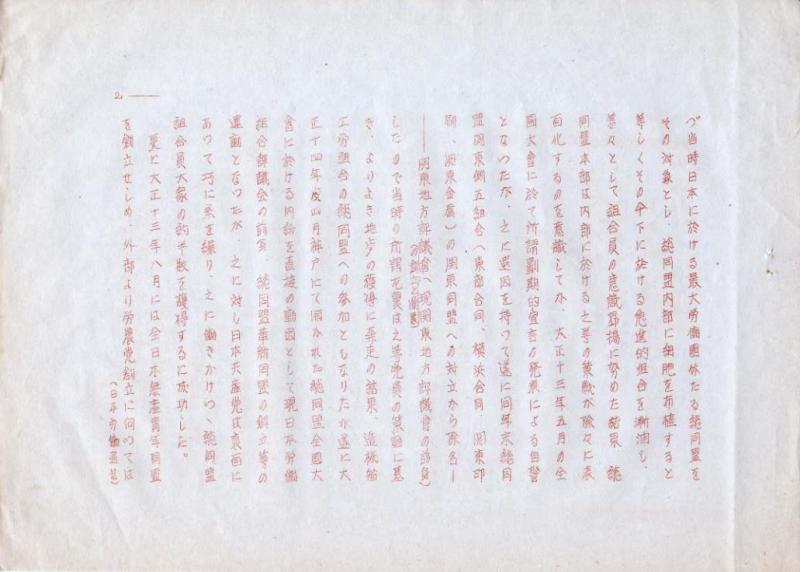 づ当時日本に於ける最大労働団体たる総同盟を
その対象とし、総同盟内部に細胞を布植すると
等しくその傘下に於ける急進的組合を
等々として組合員の意識昂揚に努めた結果 総
同盟本部は内部に於ける之等の策動が徐々に表
面化するのを意識してか、大正十三年五月の全
国大会に於て所謂劃期的宣言の発表による自警
となつたが、之に遠因を持つて遂に同年末総同
盟関東側五組合(東部合同、横浜合同、関東印
刷、関東金属)の関東同盟への対立から除名―
――関東地方評議会(現関東地方評議会の前身)
の創立
したので当時の所謂 は之等党員の策動に基
き、よりよき地歩の獲得に奔走の結果、造機船
工労組合の総同盟への参加ともなりたが遂に大
正十四年度四月神戸にて開かれた総同盟全国大
会に於ける内訌を直接の動因として現日本労働
組合評議会の前身、総同盟革新同盟の創立等の
運動となつたが、之に対し日本共産党は裏面に
あつて巧に糸を繰り、之に働きかけつゝ総同盟
組合員大衆の約半数を獲得するに成功した。
更に大正十三年八月には全日本無産青年同盟
を創立せしめ、外部より労農党創立に向つては
(日本労働
2.――